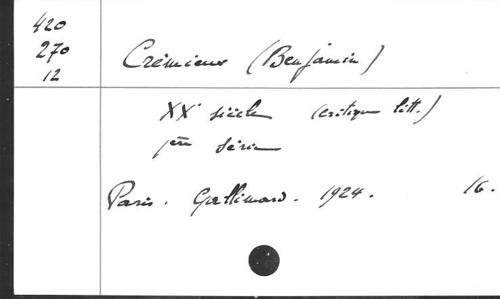 420
270
12
Crémieux (Benjamin)
XXe siècle (critique litt.)
1ère série
Paris. Gallimard. 1924. 16.